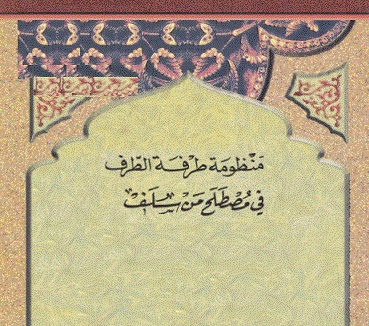 مَنْظومَة طرفَة الطّرف
في مُصْطَلَح مَن سَلَفْ